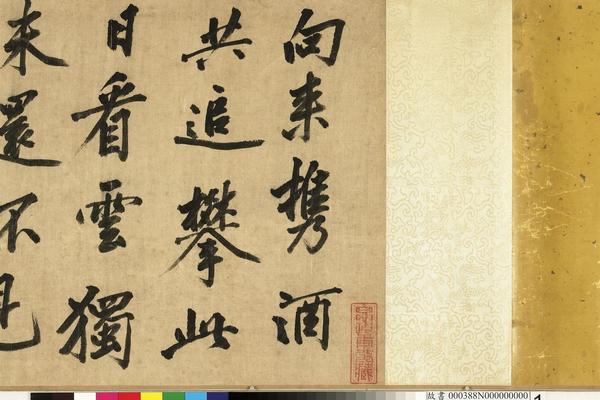 向来携酒
共追攀此
日看雲獨
未還不見
故書 000388N000000000
1